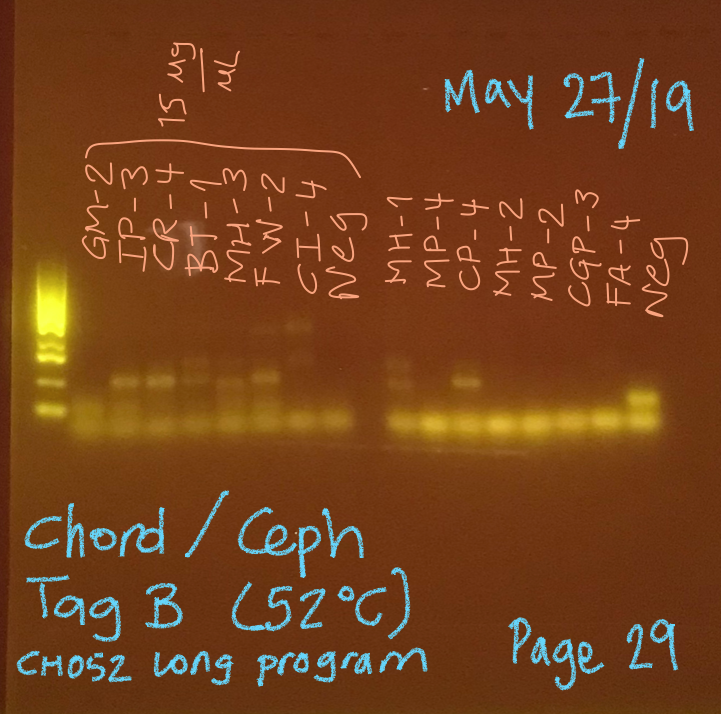 May 27/19
15 µg
µL
GM-2
IP-3
CR-4
BT-1
MH-3
FW-2
CI-4
Neg
MH-1
MP-4
CP-4
MH-2
MP-2
CGP-3
FA-4
Neg
Chord / Ceph
Tag B (52°C)
CHO52 Long program
Page 29